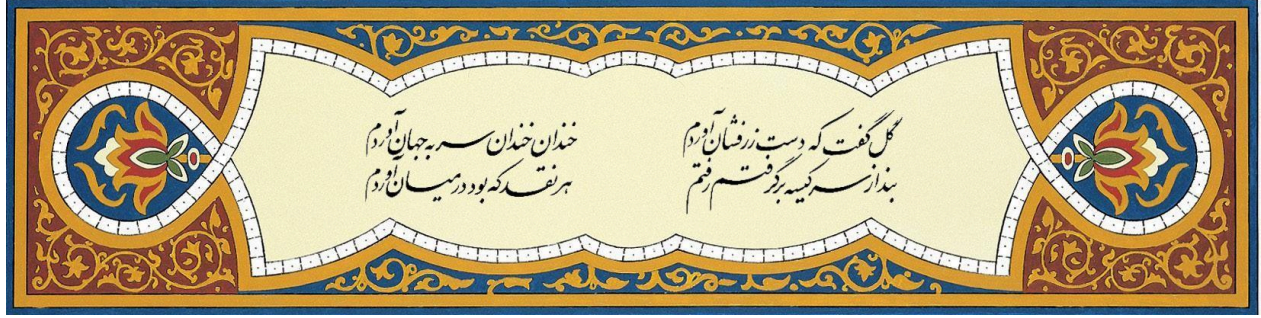 گل گفت که دست زرفشان آوردم
خندان خندان سر به جهان آوردم
بند از سر کیسه برگرفتم رفتم
هر نقد که بود در میان آوردم